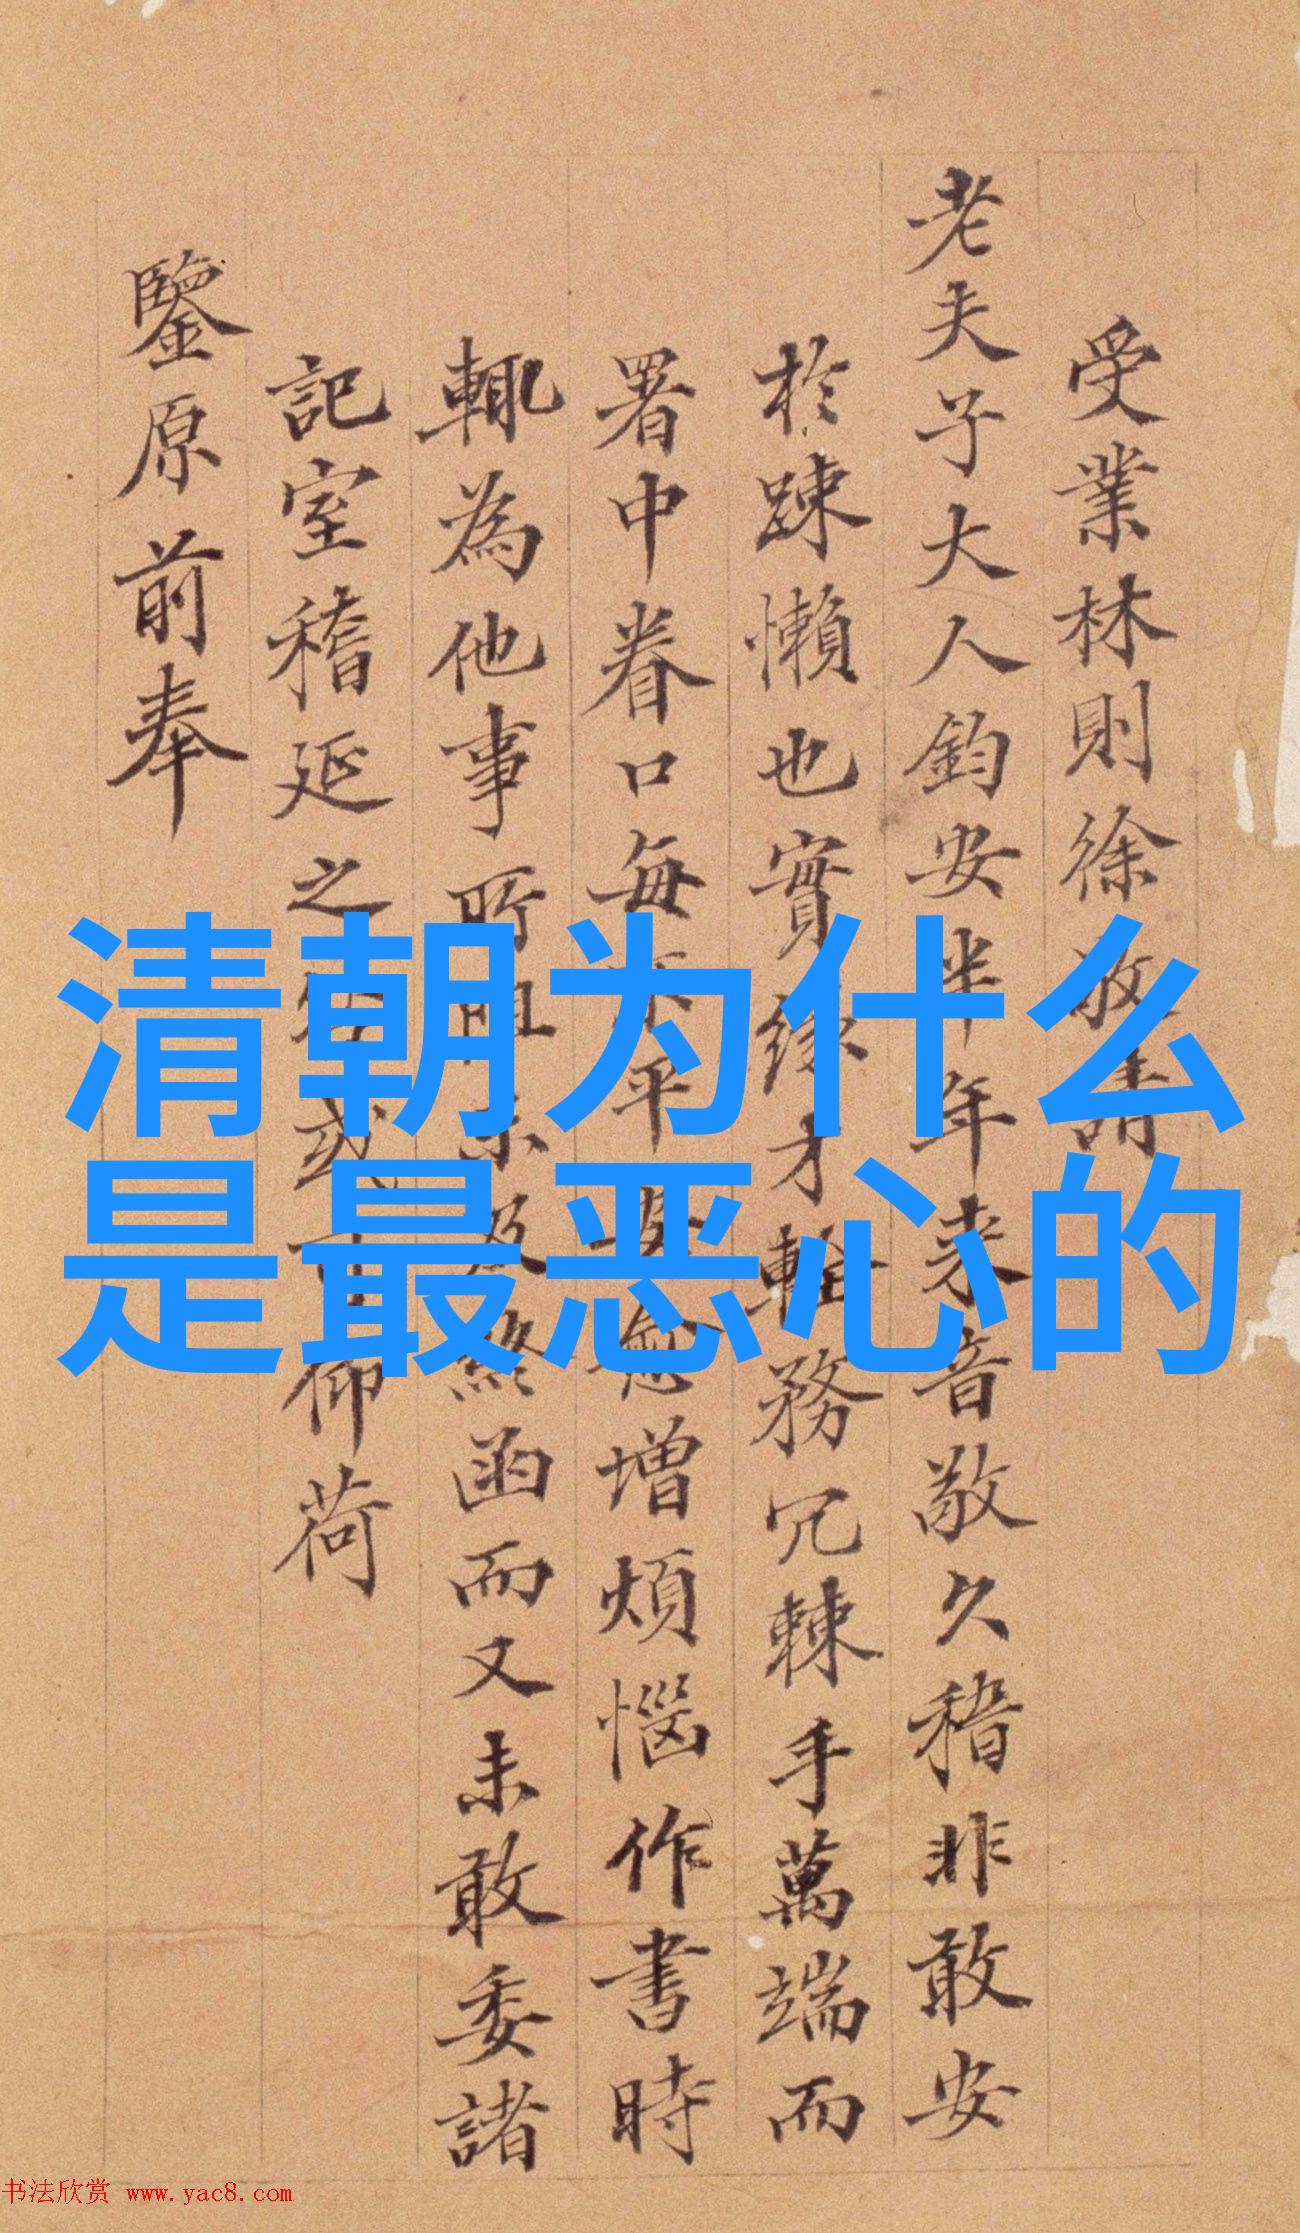 受業林則徐敬請
老夫子大人鈞安半年來音敬久稽非敢安
於踈懶也實緣才輇務冗棘手萬端而
署中眷口每不平安愈增煩惱作書時
輒為他事所阻未及終函而又未敢委諸
記室稽延之或仰荷
鑒原前奉
清朝为什么
是最恶心的
书法欣赏 www.yac8.com